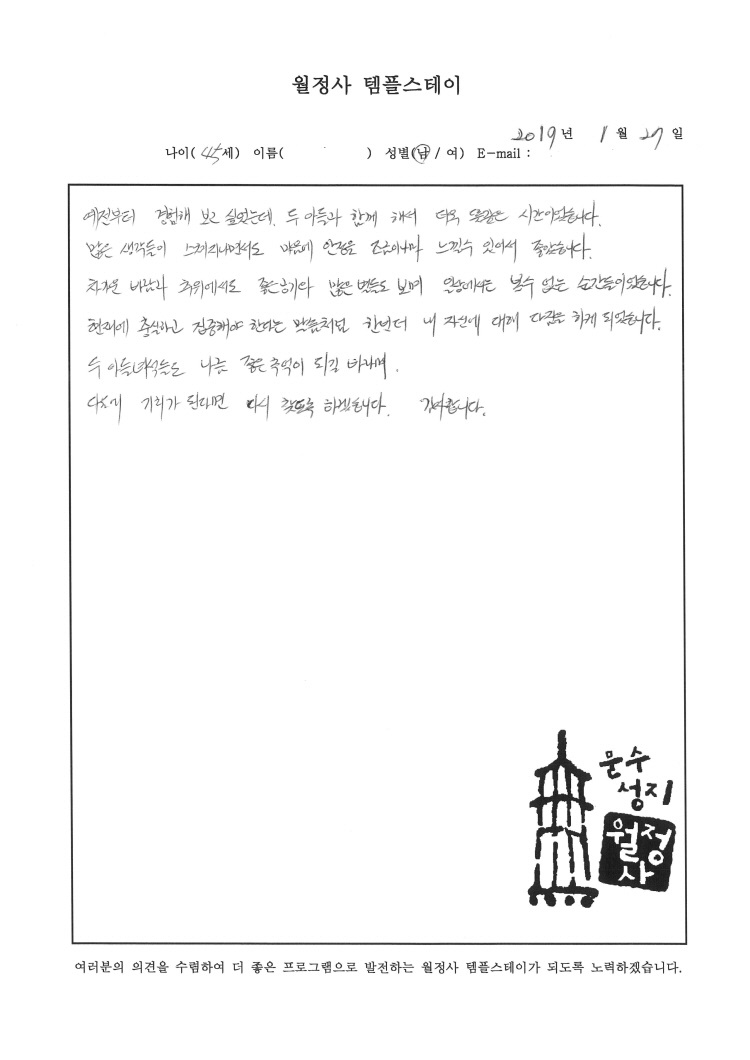 월정사 템플스테이
2019년 1월 27일
나이( 45세) 이름( ) 성별(남 / 여) E-mail :
예전부터 경험해 보고 싶었는데, 두 아들과 함께 해서 더욱 뜻깊은 시간이었습니다.
많은 생각들이 스쳐지나면서도 마음에 안정을 조금이나마 느낄수 있어서 좋았습니다.
차가운 바람과 추위에서도 좋은공기와 많은 별들도 보며 일상에서는 볼수 없는 순간들이었습니다.
현재에 충실하고 집중해야 한다는 말씀처럼 한번더 내 자신에 대해 다짐을 하게 되었습니다.
두 아들녀석들도 나름 좋은 추억이 되길 바라며.
다시 기회가 된다면 다시 찾도록 하겠습니다. 감사합니다.
문수
성지
월정
사
여러분의 의견을 수렴하여 더 좋은 프로그램으로 발전하는 월정사 템플스테이가 되도록 노력하겠습니다.